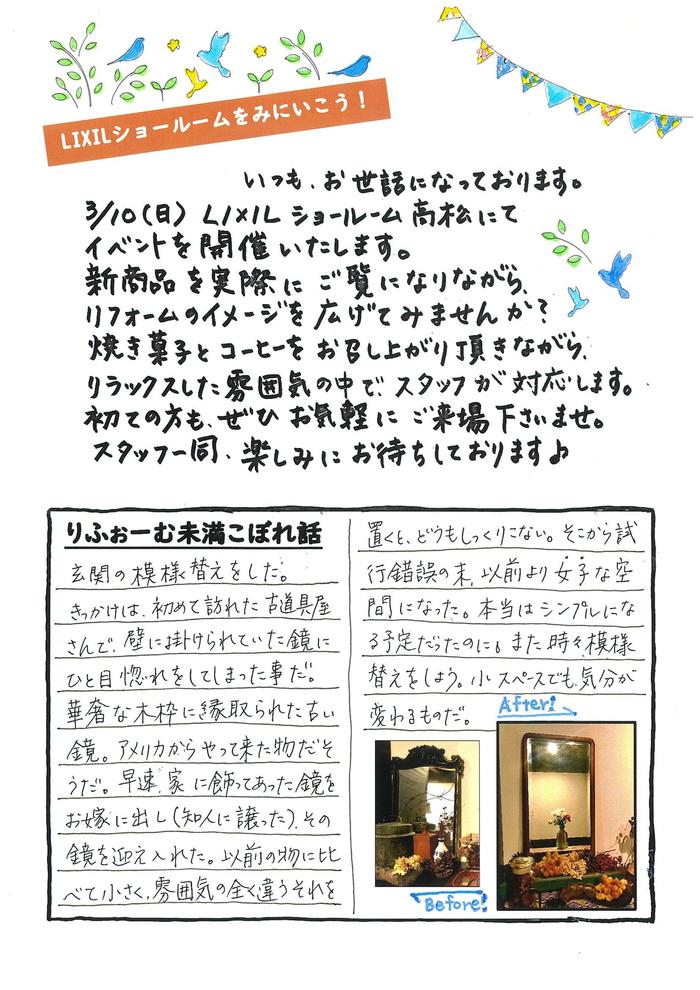 LIXILショールームをみにいこう！
いつも、お世話になっております。
3/10(日) LIXIL ショールーム高松にて
イベントを開催いたします。
新商品を実際にご覧になりながら、
リフォームのイメージを広げてみませんか？
焼き菓子とコーヒーをお召し上がり頂きながら、
リラックスした雰囲気の中で、スタッフが対応します。
初ての方も、ぜひお気軽にご来場下さいませ。
スタッフ一同、楽しみにお待ちしております♪
りふぉーむ未満こぼれ話
玄関の模様替えをした。
きっかけは、初めて訪れた古道具屋
さんで、壁に掛けられていた鏡に
ひと目惚れをしてしまった事だ。
華奢な木枠に縁取られた古い
鏡。アメリカからやって来た物だそ
うだ。早速、家に飾ってあった鏡を
お嫁に出し(知人に譲った)、その
鏡を迎え入れた。以前の物に比
べて小さく、雰囲気の全く違うそれを
置くと、どうもしっくりこない。そこから試
行錯誤の末、以前より女子な空
間になった。本当はシンプルにな
る予定だったのに。また時々模様
替えをしよう。小スペースでも、気分が
変わるものだ。
After!
Before!